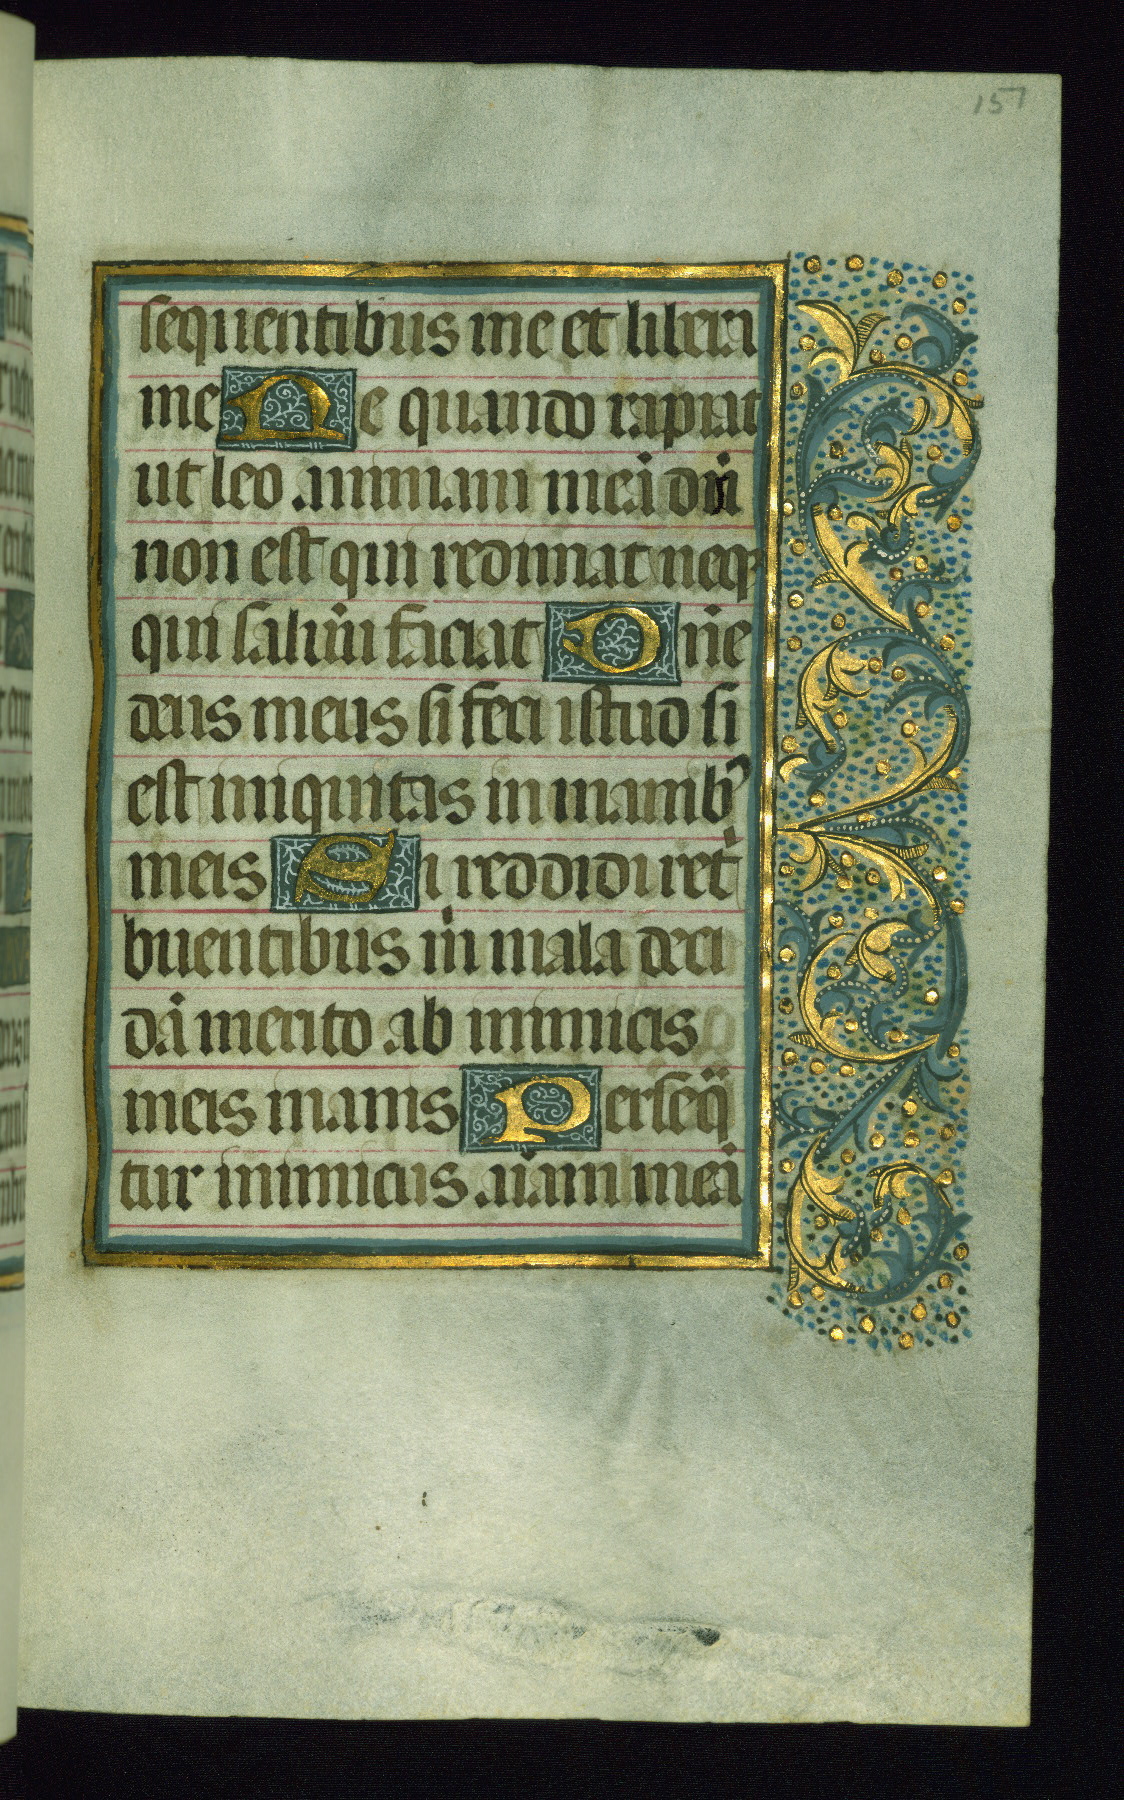 157
sequentibus me et libera
me Ne quando rapiat
ut leo animam meā dū
non est qui redimat neqꝫ
qui saluū faciat Dn̄e
deus meus si feci istud si
est iniquitas in manibꝰ
meis Si reddidi ret
buentibus m̄ mala deci
dā merito ab inimicis
meis inanis Perseq̄
tur inimicus aīam meā